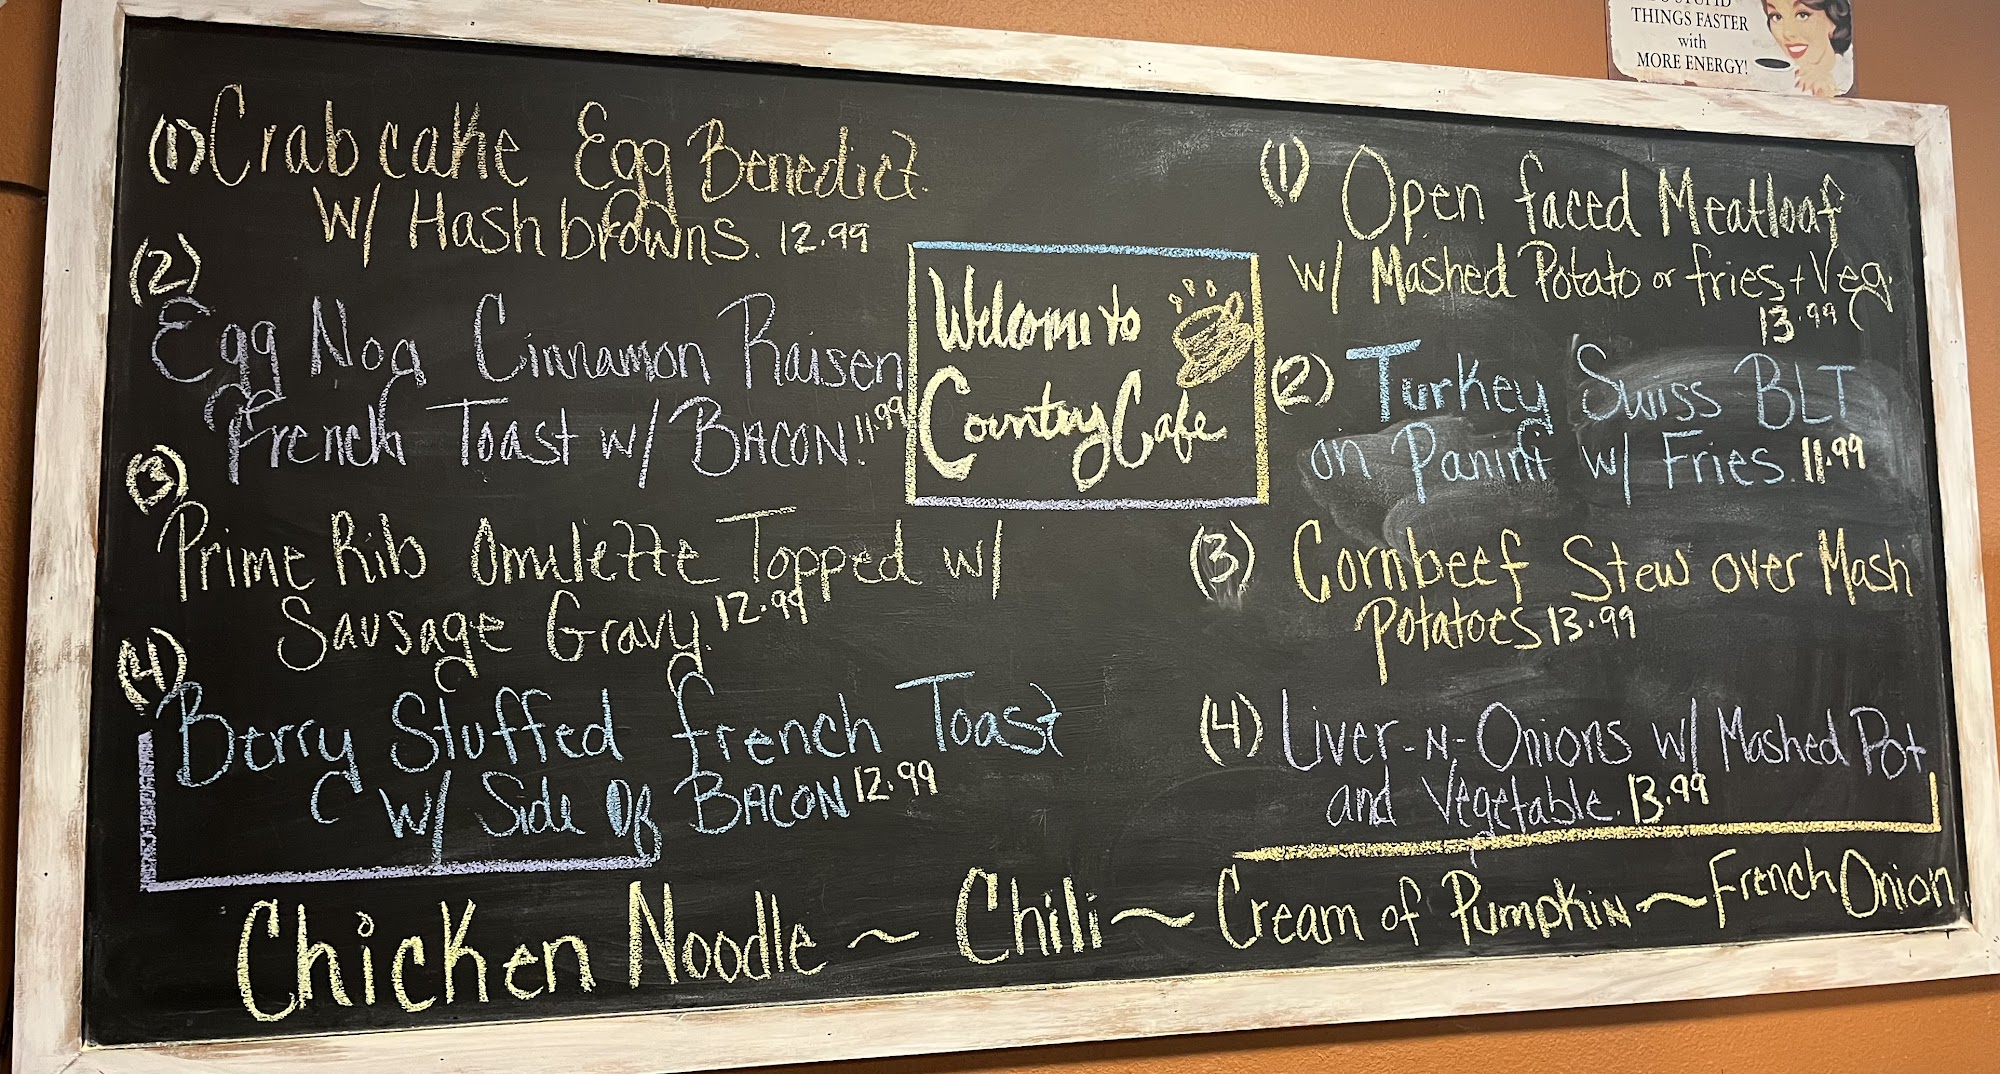 O STUPID
THINGS FASTER
with
MORE ENERGY!
(1) Crab cake Egg Benedict
w/ Hash browns. 12.99
(2)
Egg Nog Cinnamon Raisen
French Toast w/ BACON. 11.99
(3)
Prime Rib Omulette Topped w/
Sausage Gravy. 12.99
(4)
Berry Stuffed french Toast
w/ Side Of BACON 12.99
Welcome to
Country Cafe
(1) Open faced Meatloaf
w/ Mashed Potato or fries + Veg.
13.99
(2) Turkey Swiss BLT
on Panini w/ Fries. 11.99
(3) Cornbeef Stew over Mash
Potatoes 13.99
(4) Liver-N-Onions w/ Mashed Pot
and Vegetable. 13.99
Chicken Noodle ~ Chili ~ Cream of Pumpkin ~ French Onion